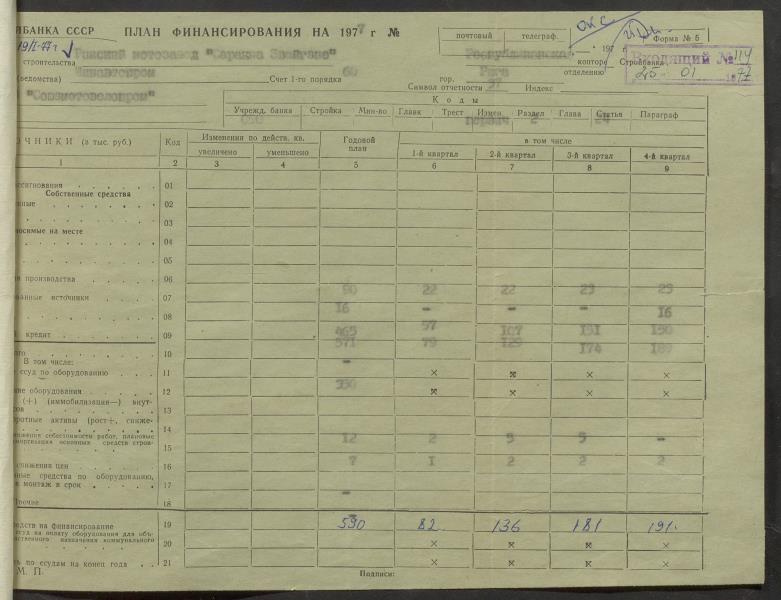 ЙБАНКА СССР
ПЛАН ФИНАНСИРОВАНИЯ НА 1977 г №
19/I-77г
почтовый телеграф.
Форма № 5
Рижский мотозавод "Саркана Звайгзне"
Республиканская
197 г
Входящий № 114
25 - 01 1977
строительства
конторе Стройбанка
Минавтопром
(ведомства)
Счет 1-го порядка 60
гор. Рига
отделению
Символ отчетности 37 Индекс
"Союзмотовелопром"
Коды
Учрежд. банка Стройка Мин-во Главк Трест Измен. Раздел Глава Статья Параграф
первич 2 24
ОЧНИКИ (в тыс. руб.)
Код
Изменения по действ. кв.
Годовой план
в том числе
увеличено уменьшено
1-й квартал 2-й квартал 3-й квартал 4-й квартал
1 2 3 4 5 6 7 8 9
ссигнования 01
Собственные средства
02
03
носимые на месте
04
05
производства 06
ванные источники 07 90 22 22 23 23
08 16 - - - 16
кредит 09 465 57 107 151 150
10 571 79 129 174 189
В том числе: -
ссуд по оборудованию 11 × × × ×
ие оборудования 12 330 × × × ×
(+) (иммобилизация—) внут-
ов 13
ротные активы (рост+, сниже-
14
нижения себестоимости работ, плановые
амортизация основных средств строи-
15 12 2 5 5 -
снижения цен 16 7 1 2 2 2
ные средства по оборудованию,
монтаж в срок 17
Прочие 18 -
редств на финансирование 19 590 82 136 181 191.
ссуд на оплату оборудования для объ-
ственного назначения коммунального
20 × × × ×
по ссудам на конец года 21 × × × ×
М. П.
Подписи: